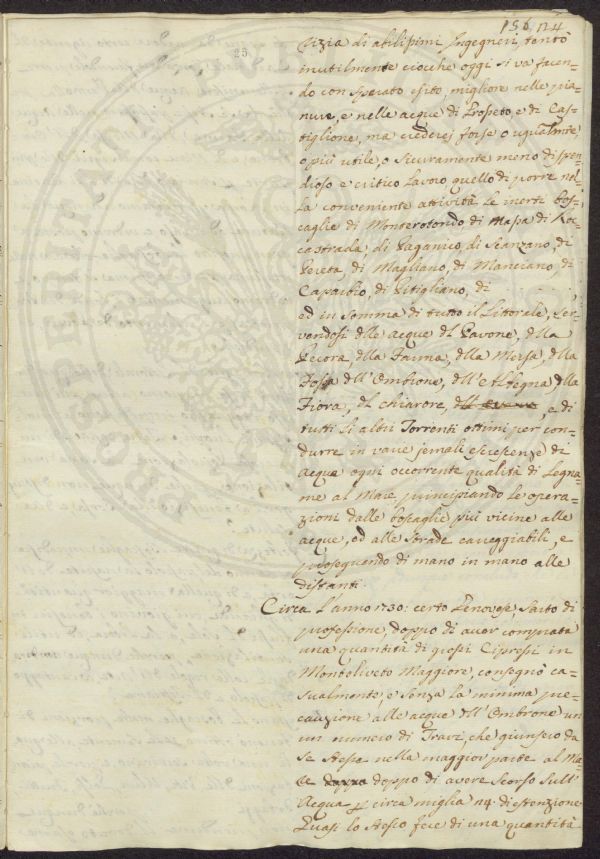 156. 124
25
rizia di abilissimi Ingegneri, tentò
inutilmente ciocche oggi si va facen=
do con sperato esito, migliore nelle pia=
nure, e nelle acque di Grosseto, e di Cas=
tiglione, ma crederei forse o ugualmte
o più utile, o sicuramente meno dispen=
dioso e critico Lavoro quello di porre nel=
la conveniente attività le inerti bos=
caglie di Monterotondo di Massa di Roc=
castrada, di Paganico di Scanzano, di
Pereta, di Magliano, di Manciano, di
Capalbio, di Pitigliano, di
ed in somma di tutto il Littorale, ser=
vendosi dlle acque dl Pavone, dlla
Pecora, dlla Farma, dlla Mersa, dlla
Fossa dll'Ombrone, dll'Albegna, dlla
Fiora, dl Chiarore, e di
tutti li altri Torrenti ottimi per con=
durre in varie jemali escrescenze di
Acque ogni occorrente qualità di Legna=
me al Mare, principiando le opera=
zioni dalle boscaglie più vicine alle
acque, ed alle strade carreggiabili, e
proseguendo di mano in mano alle
distanti.
Circa l'anno 1730. certo Genovese, Sarto di
professione, doppo di avor comprata
una quantità di grossi Cipressi in
Montoliveto Maggiore, consegnò ca=
sualmente, e senza la minima pre=
cauzione alle acque dll'Ombrone un
un numero di Travi, che giunsero da
se stesse nella maggior parte al Ma=
re doppo di avere scorso sull'
Acqua p circa miglia 114. di estenzione
Quasi lo stesso fece di una quantità